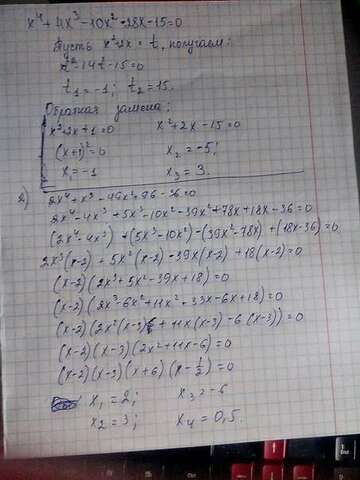 x⁴ + 4x³ - 10x² - 28x - 15 = 0
Пусть x² + 2x = t, получаем:
t² - 14t - 15 = 0
t₁ = -1; t₂ = 15.
Обратная замена:
x² + 2x + 1 = 0 x² + 2x - 15 = 0
(x+1)² = 0 x₂ = -5;
x₁ = -1 x₃ = 3.
2) 2x⁴ + x³ - 49x² + 96 - 36 = 0
2x⁴ - 4x³ + 5x³ - 10x² - 39x² + 78x + 18x - 36 = 0
(2x⁴ - 4x³) + (5x³ - 10x²) - (39x² - 78x) + (18x - 36) = 0
2x³(x-2) + 5x²(x-2) - 39x(x-2) + 18(x-2) = 0
(x-2)(2x³ + 5x² - 39x + 18) = 0
(x-2)(2x³ - 6x² + 11x² - 33x - 6x + 18) = 0
(x-2)(2x²(x-3) + 11x(x-3) - 6(x-3)) = 0
(x-2)(x-3)(2x² + 11x - 6) = 0
(x-2)(x-3)(x+6)(x - 1/2) = 0
x₁ = 2; x₃ = -6
x₂ = 3; x₄ = 0,5.